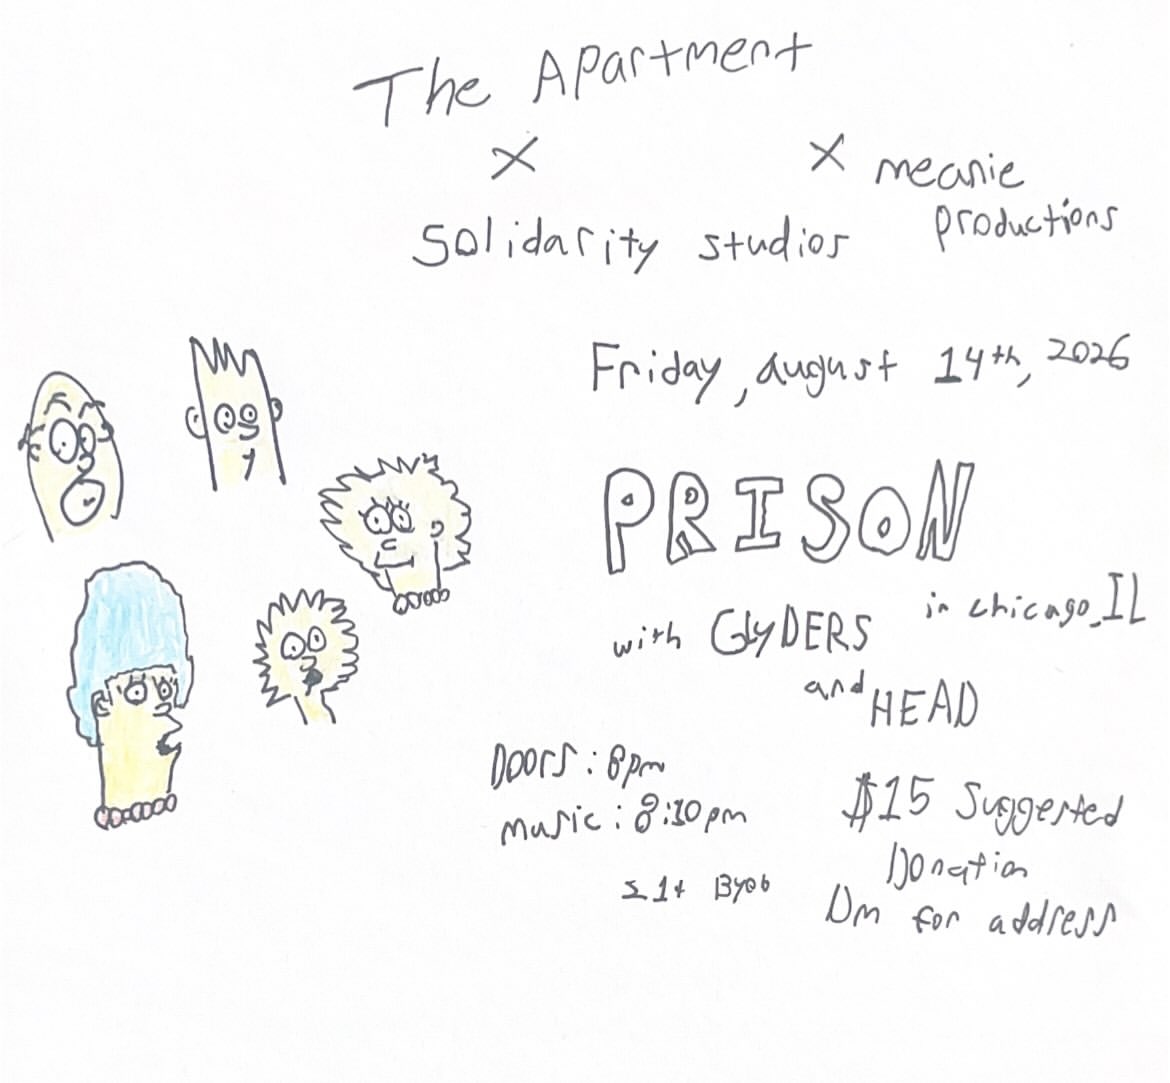 The Apartment
X X meanie
productions
Solidarity studios
Friday, august 14th, 2026
PRISON
in chicago, IL
with GlyDERS
and HEAD
Doors: 8pm
music: 8:30pm
$15 Suggested
Donation
21+ Byob
Dm for address